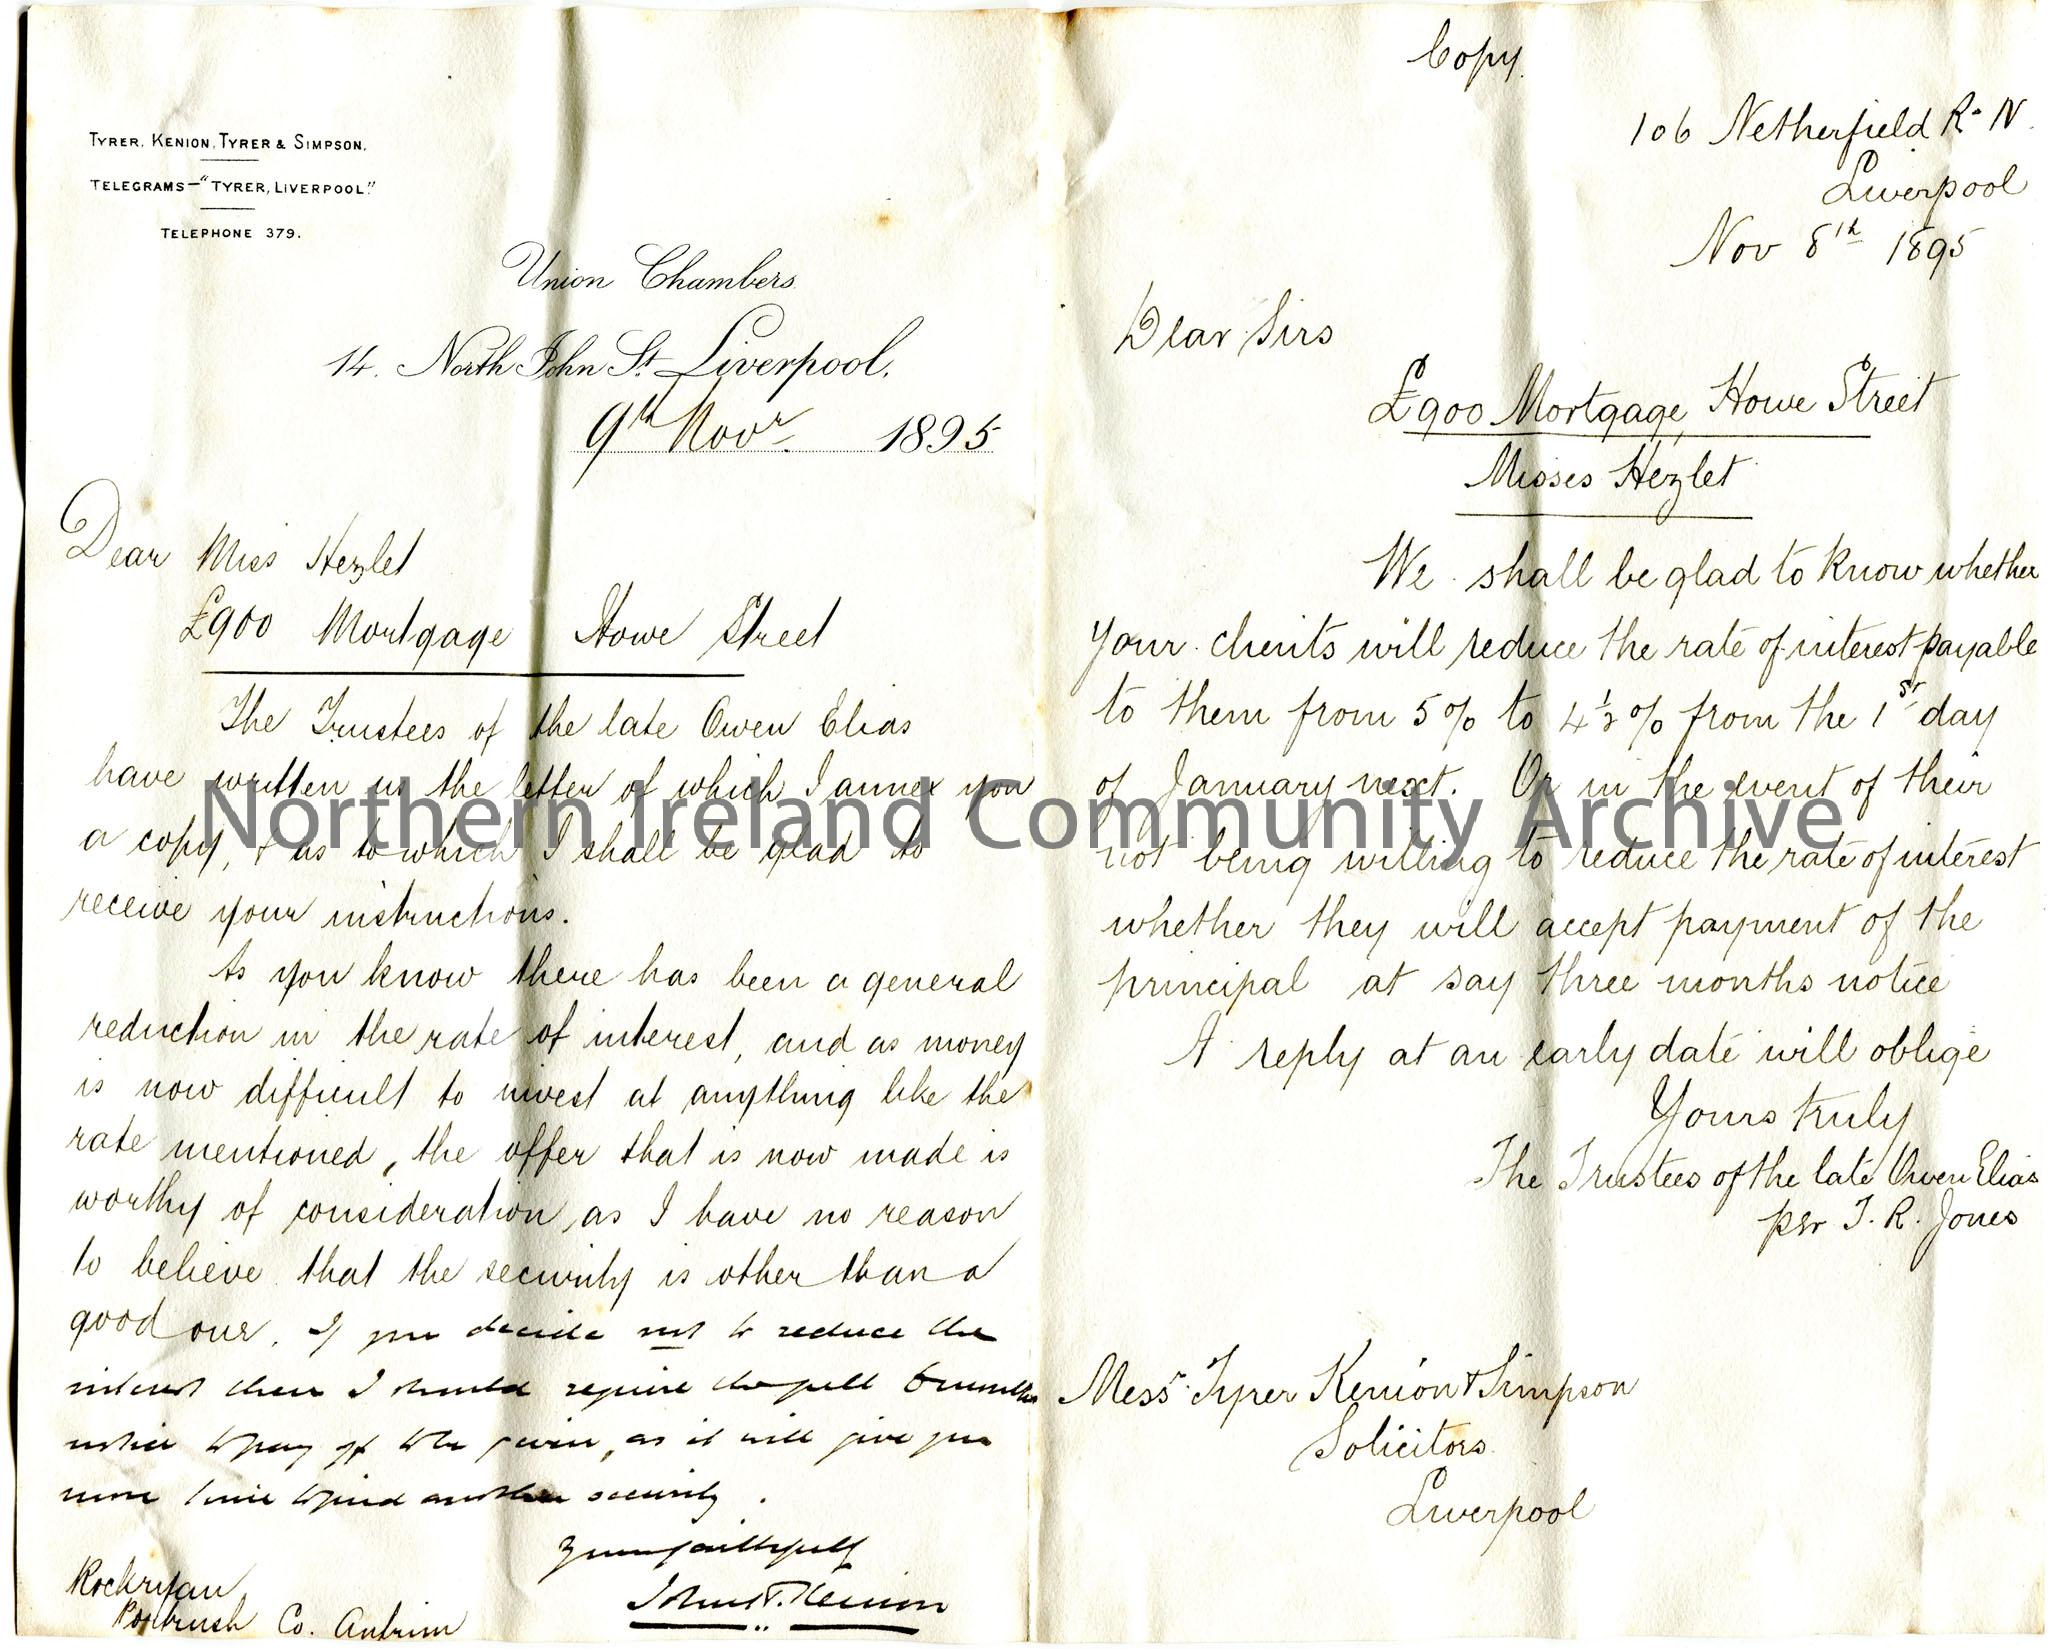 TYRER, KENION, TYRER & SIMPSON.
TELEGRAMS—"TYRER, LIVERPOOL."
TELEPHONE 379.
Union Chambers
14. North John St. Liverpool,
9th Novr. 1895
Dear Miss Hezlet
£900 Mortgage Howe Street
The Trustees of the late Owen Elias
have written us the letter of which I annex you
a copy, & as to which I shall be glad to
receive your instructions.
As you know there has been a general
reduction in the rate of interest, and as money
is now difficult to invest at anything like the
rate mentioned, the offer that is now made is
worthy of consideration, as I have no reason
to believe that the security is other than a
good one. If you decide not to reduce the
interest then I should require the full 6 months
notice to pay off to be given, as it will give you
more time to find another security.
Yours faithfully
John T. Kenion
Rockryan
Portrush Co. Antrim
Copy.
106 Netherfield Rd N.
Liverpool
Nov 8th 1895
Dear Sirs
£900 Mortgage, Howe Street
Misses Hezlet
We shall be glad to know whether
your clients will reduce the rate of interest payable
to them from 5% to 4½% from the 1st day
of January next. Or in the event of their
not being willing to reduce the rate of interest
whether they will accept payment of the
principal at say three months notice
A reply at an early date will oblige
Yours truly
The Trustees of the late Owen Elias
per T. R. Jones
Messrs Tyrer Kenion & Simpson
Solicitors
Liverpool
Northern Ireland Community Archive